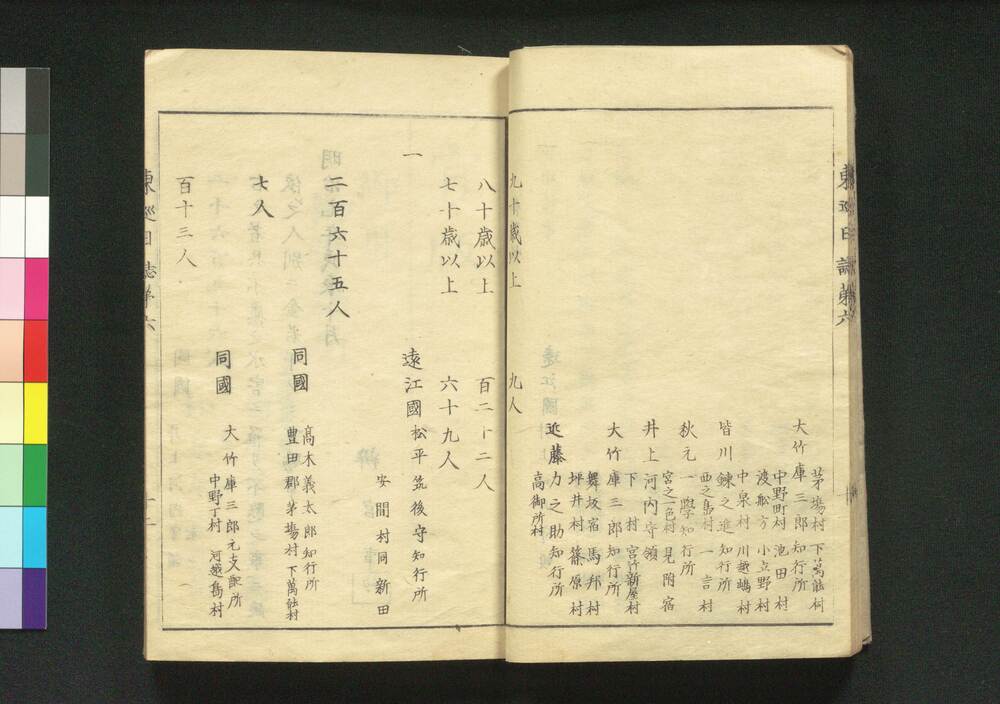 東巡日誌第六
茅場村 下萬能村
大竹庫三郎知行所
中野町村 池田村
渡舩方 小立野村
中泉村 川越嶋村
皆川錬之進知行所
西之島村 一言村
秋元一學知行所
宮之一色村 見附宿
井上河内守領
下村 宮竹新屋村
大竹庫三郎知行所
舞坂宿 馬郡村
坪井村 篠原村
近藤力之助知行所
高御所村
九十歳以上 九人
八十歳以上 百二十二人
七十歳以上 六十九人
一
遠江國松平筑後守知行所
安間村同新田
二百六十五人
同國 高木義太郎知行所
豊田郡茅場村下萬能村
七人
同國 大竹庫三郎元支配所
中野丁村 河越嶌村
百十三人
東巡日誌第六